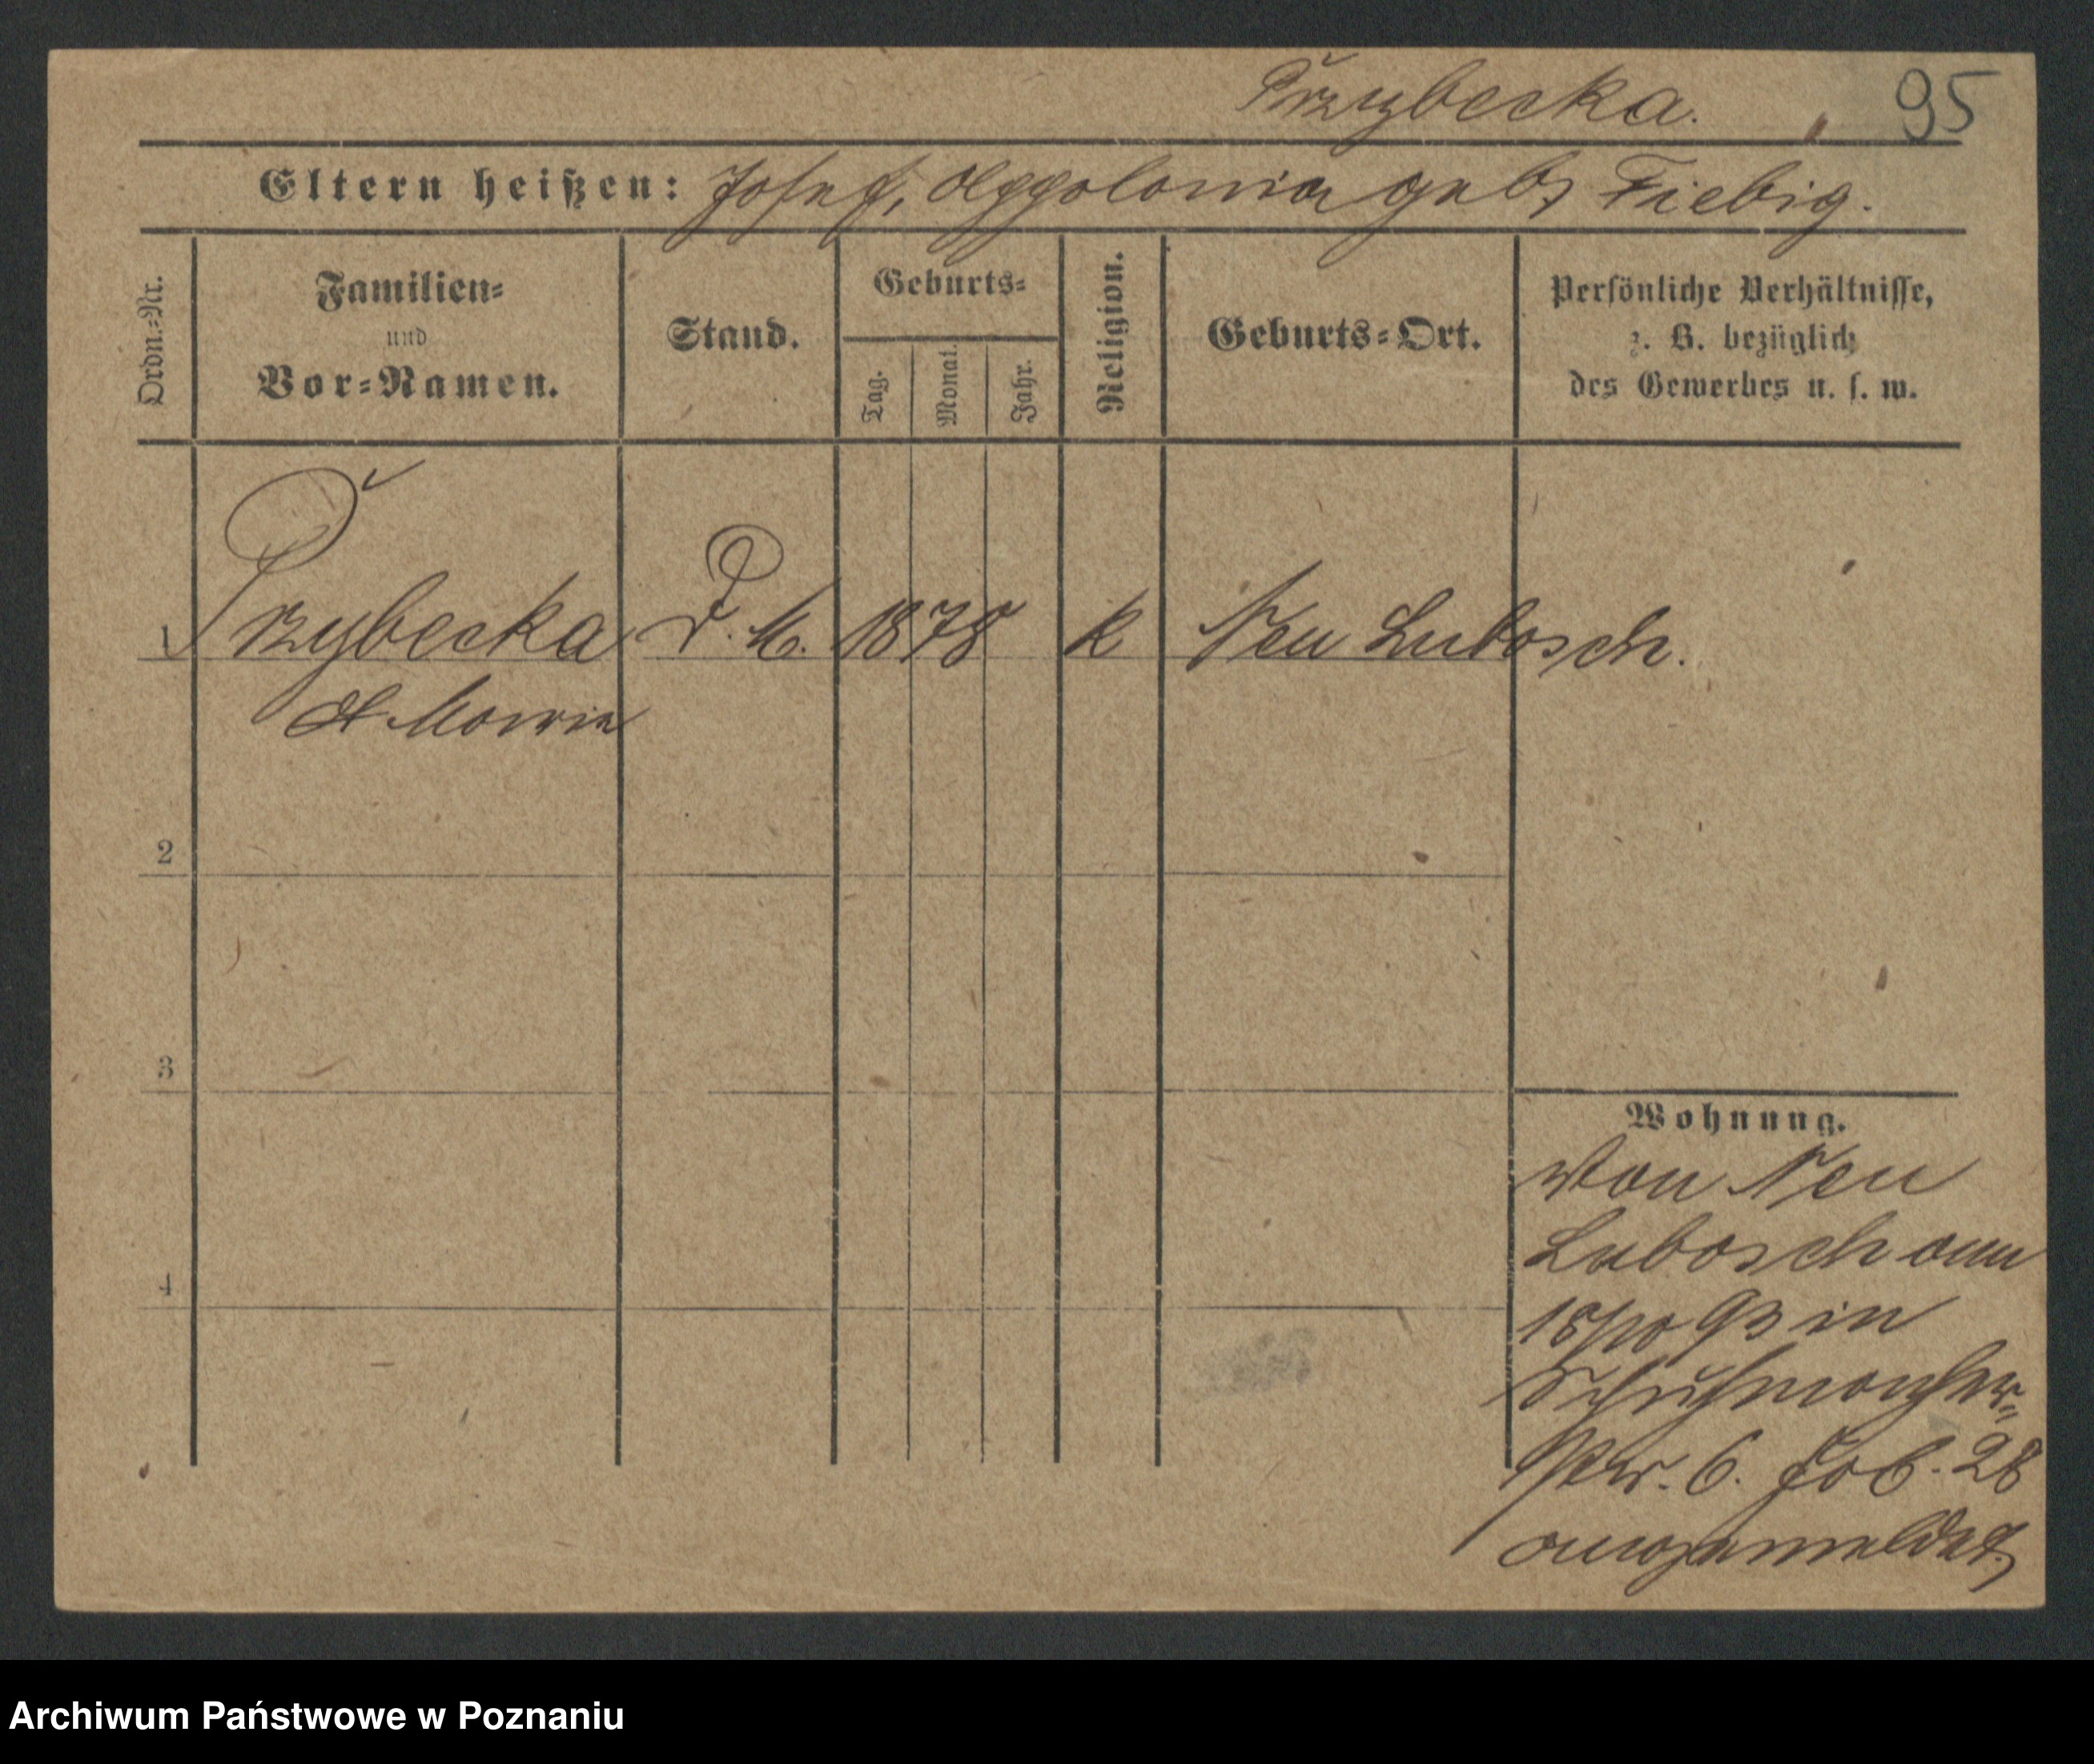 Przybecka. 95
Eltern heißen: Josef, Appolonia geb. Fiebig.
Ordn.=Nr. Familien= und Vor=Namen. Stand. Geburts= Tag. Monat. Jahr. Religion. Geburts=Ort. Persönliche Verhältnisse, z. B. bezüglich des Gewerbes u. s. w.
1 Przybecka D. M. 1878 k Neu Lubosch.
Maria
2
3
4
Wohnung.
Von Neu
Lubosch am
18/10 93 in
Schuhmacher=
str. 6. Job. 28
angemeldet
Archiwum Państwowe w Poznaniu